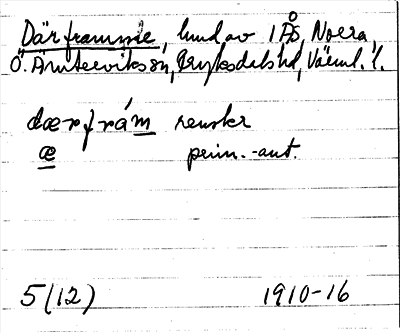 Där framme, lmd av 1 Ås, Norra,
Ö. Ämterviks sn, Fryksdals hd, Värml. l.
dærfrám renskr
æ prim.-ant.
5(12) 1910-16